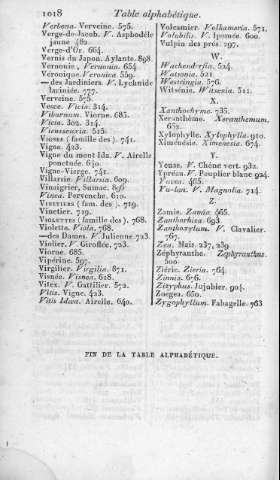 1018 Table alphabétique.
Verbena. Verveine. 575.
Verge-de-Jacob. V. Asphodèle
jaune 482.
Verge-d'Or. 664.
Vernis du Japon. Aylante. 898.
Vernonie. Vernonia. 654
Véronique. Veronica. 559.
—des Jardiniers. V. Lychnide
laciniée. 777.
Verveine. 575.
Vesce. Vicia. 314.
Viburnum. Viorne. 685.
Vicia. 302. 314.
Vieusseuxia. 515.
Vignes (famille des). 741.
Vigne. 423.
Vigne du mont Ida. V. Airelle
ponctuée. 640.
Vigne-Vierge. 741.
Villarsie. Villarsia. 609.
Vinaigrier, Sumac.
Vinca. Pervenche. 610.
Vinettiers (fam. des). 719.
Vinetier. 719.
Violettes (famille des). 768.
Violette. Viola. 768.
—des Dames. V. Julienne. 723.
Violier. V. Giroflée. 723.
Viorne. 685.
Vipérine. 597.
Virgilier. Virgilia. 871.
Visnée. Visnea. 628.
Vitex. V. Gattilier. 572.
Vitis. Vigne. 423.
Vitis Idæa. Airelle. 640.
Volcamier. Volkamaria. 571.
Volubilis. V. Ipomée. 600.
Vulpin des prés. 297.
W.
Wachendorfia. 524.
Watsonia. 521
Westringia. 576.
Witsénie. Witsenia. 511.
X.
Xanthochyme. 735.
Xéranthème. Xeranthemum.
652.
Xylophylle. Xylophylla. 910.
Ximénésie. Ximenesia. 674.
Y.
Yeuse. V. Chêne vert. 932.
Ypréau. V. Peuplier blanc 924.
Yucca. 485.
Yu-lan. V. Magnolia. 714.
Z.
Zamie. Zamia. 465.
Zanthorhiza. 693.
Zanthoxylum. V. Clavalier.
767.
Zea. Maïs. 237, 239
Zéphyranthe. Zephyranthes.
500.
Ziérie. Zieria. 764.
Zinnia. 676.
Zizyphus. Jujubier. 904.
Zoegea. 650.
Zygophyllum. Fabagelle. 763
FIN DE LA TABLE ALPHABÉTIQUE.